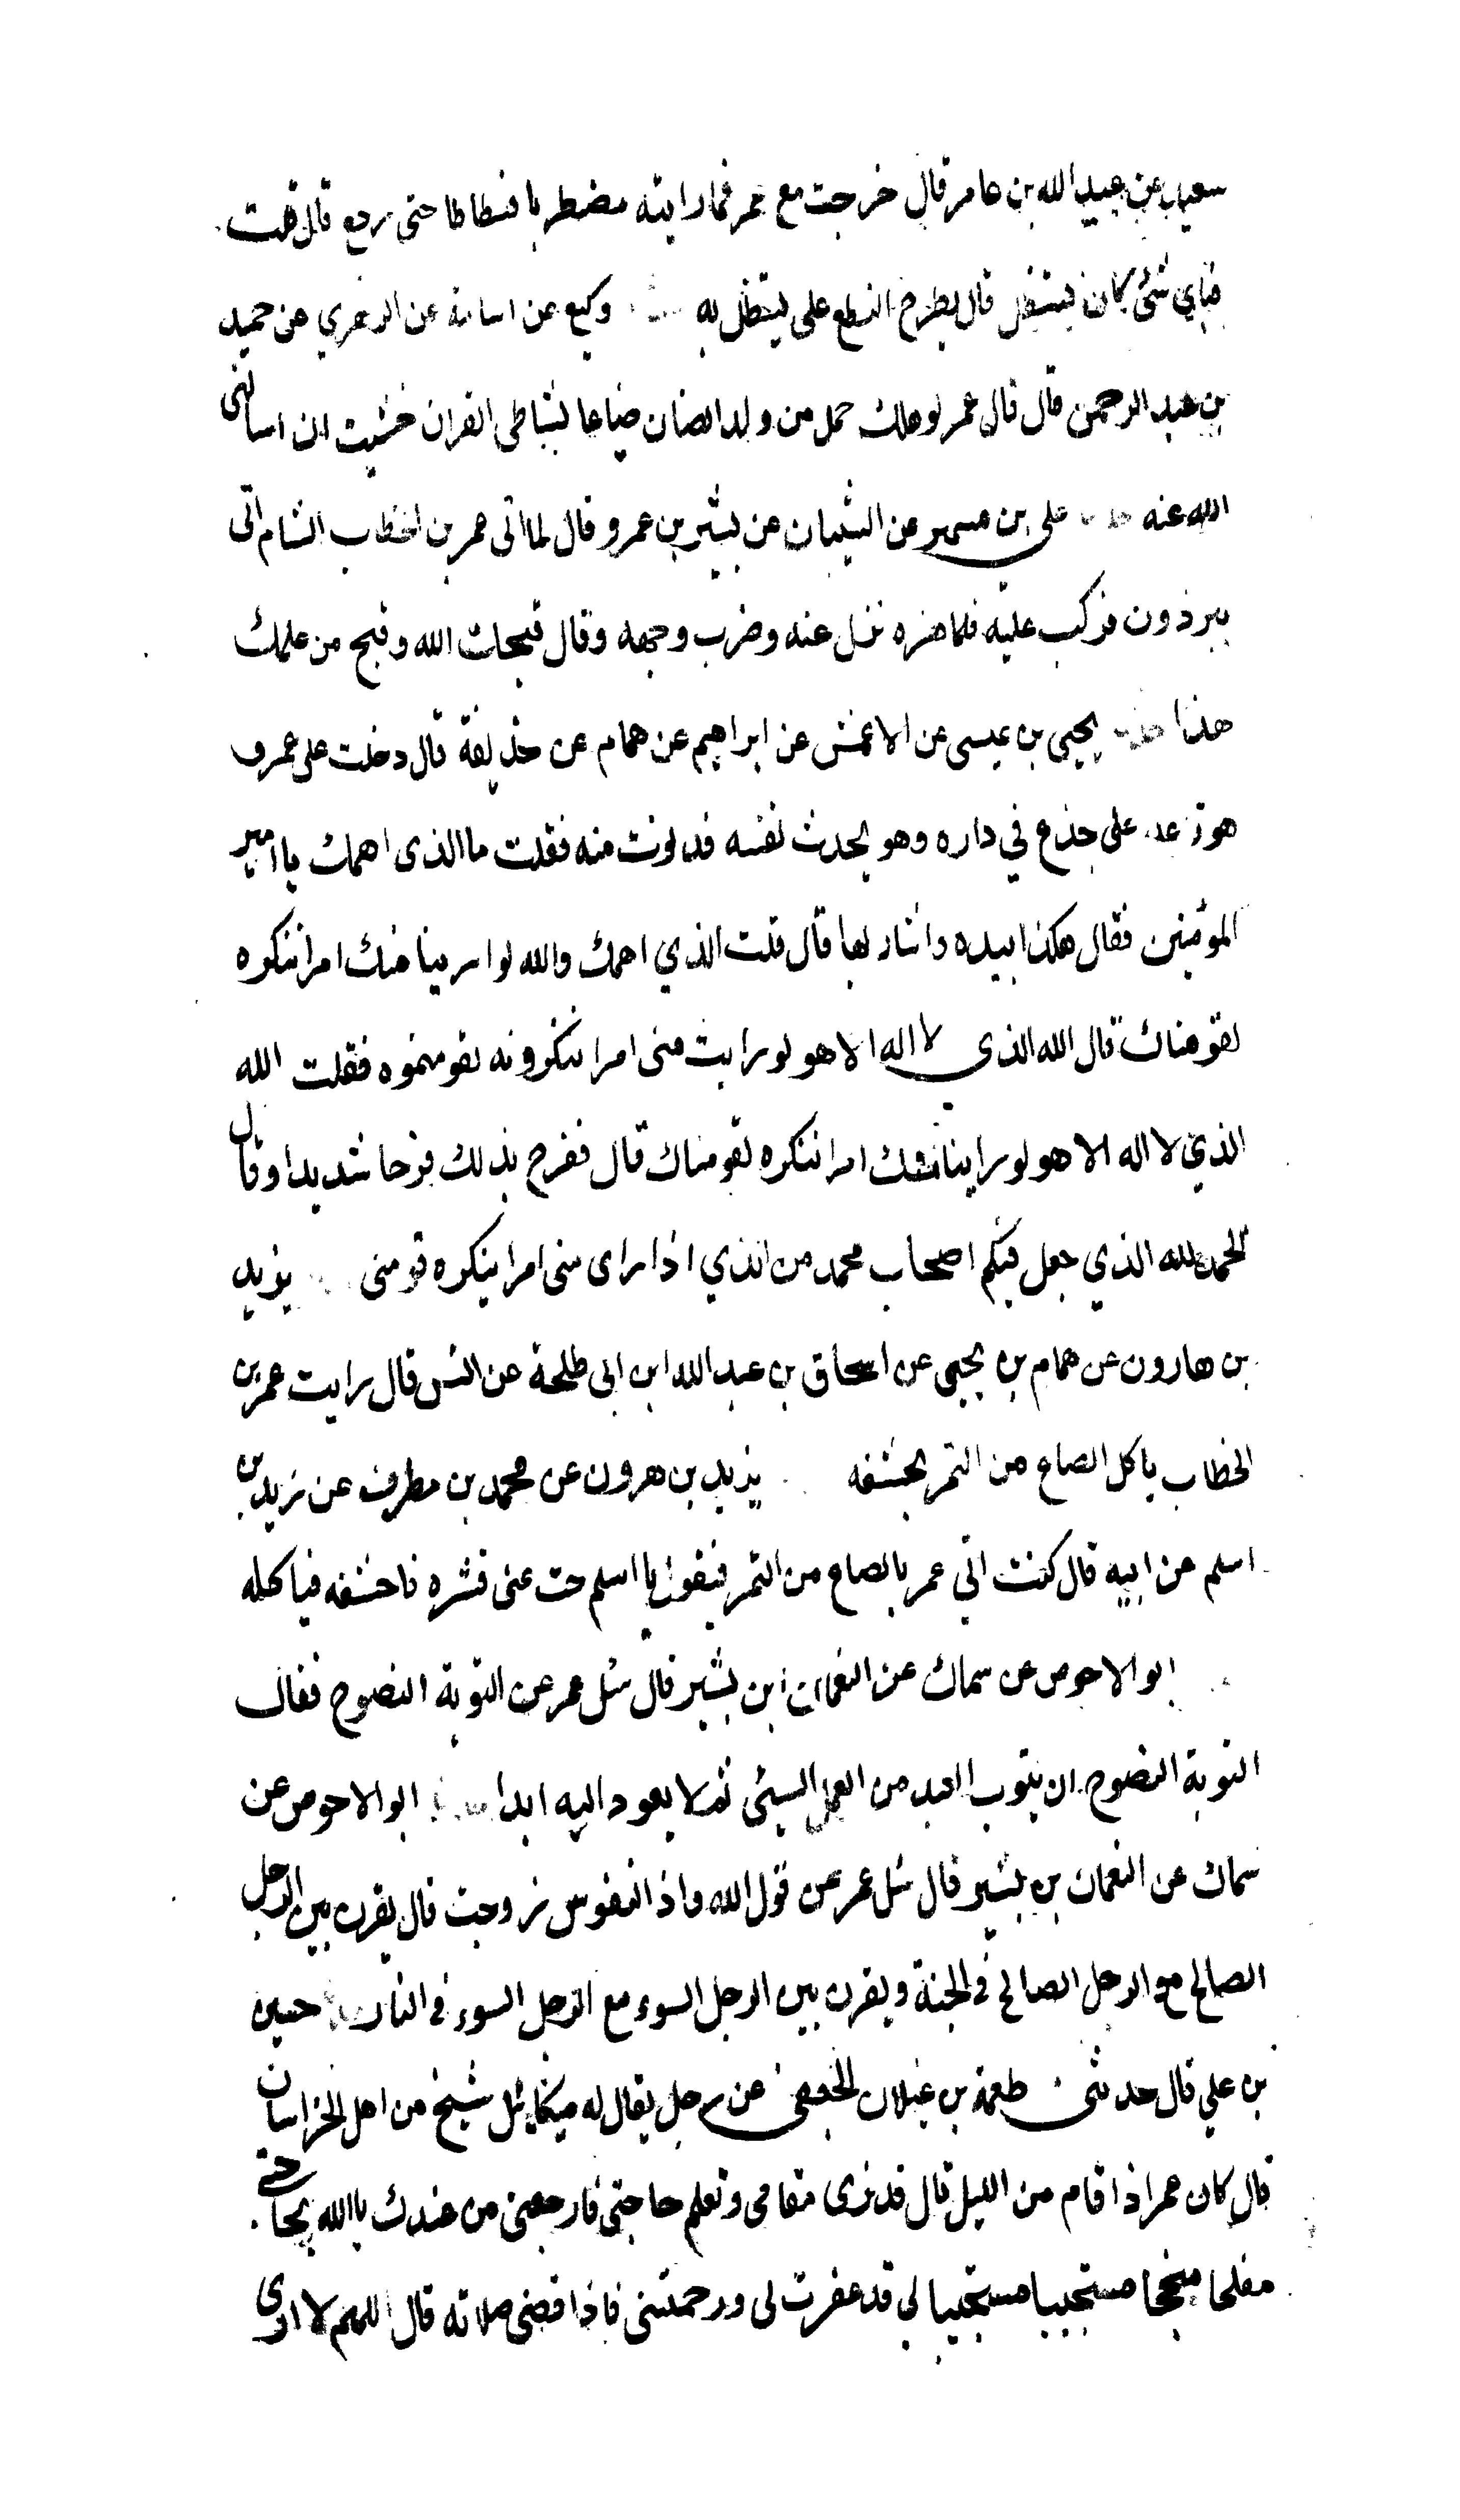 سعيد عن عبد الله بن عامر قال خرجت مع عمر فما رايته مضطربا فسطاطا حتى رجع قال قلت
فباي شئ كان يستظل قال يطرح النطع على يستظل به وكيع عن اسامة عن الزهري عن حميد
بن عبد الرحمن قال قال عمر لو هلك حمل من ولد الضان ضياعا بشاطى الفرات خشيت ان اسالنى
الله عنه على بن مسهر عن الشيبان عن بشير بن عمرو قال لما اتى عمر بن الخطاب الشام اتى
ببرذون فركب عليه فلما هزه نزل عنه وضرب وجهه وقال قبحك الله وقبح من علمك
هذا يحيى بن عيسى عن الاعمش عن ابراهيم عن همام عن حذيفة قال دخلت على عمر و
هو على جذع في داره وهو يحدث نفسه فدنوت منه فقلت ما الذى اهمك يا امير
المؤمنين فقال هكذا بيده واشار بها قال قلت الذي اهمك والله لو اراينا منك امرا ننكره
لقومناك قال الله الذي لا اله الا هو لو رايت منى امرا تنكرونه لقومتموه فقلت الله
الذي لا اله الا هو لو راينا منك امرا ننكره لقومناك قال ففرح بذلك فرحا شديدا وقال
الحمد لله الذي جعل فيكم اصحاب محمد من الذي اذا راى منى امرا ينكره قومنى يزيد
بن هارون عن همام بن يحيى عن اسحاق بن عبد الله ابن ابى طلحة عن انس قال رايت عمر بن
الخطاب ياكل الصاع من التمر بحشفه يزيد بن هرون عن محمد بن مطرف عن زيد بن
اسلم عن ابيه قال كنت اتي عمر بالصاع من التمر فيقول يا اسلم حت عنى قشره فاحشفه فياكله
ابو الاحوص عن سماك عن النعمان ابن بشير قال سئل عمر عن التوبة النصوح فقال
التوبة النصوح ان يتوب العبد من العمل السيئ ثم لا يعود اليه ابدا ابو الاحوص عن
سماك عن النعمان بن بشير قال سئل عمر عن قول الله واذا النفوس زوجت قال يقرن بين الرجل
الصالح مع الرجل الصالح في الجنة ويقرن بين الرجل السوء مع الرجل السوء في النار حسين
بن علي قال حدثنى طعمة بن غيلان الجعفى عن رجل يقال له ميكائيل شيخ من اهل الخراسان
قال كان عمر اذا قام من الليل قال قد ترى مقامى وتعلم حاجتى فارجعنى من عندك يا الله بحاجتى
مفلحا منجحا مستجيبا مستجيبا لي قد غفرت لى ورحمتنى فاذا قضى صلاته قال اللهم لا ارى